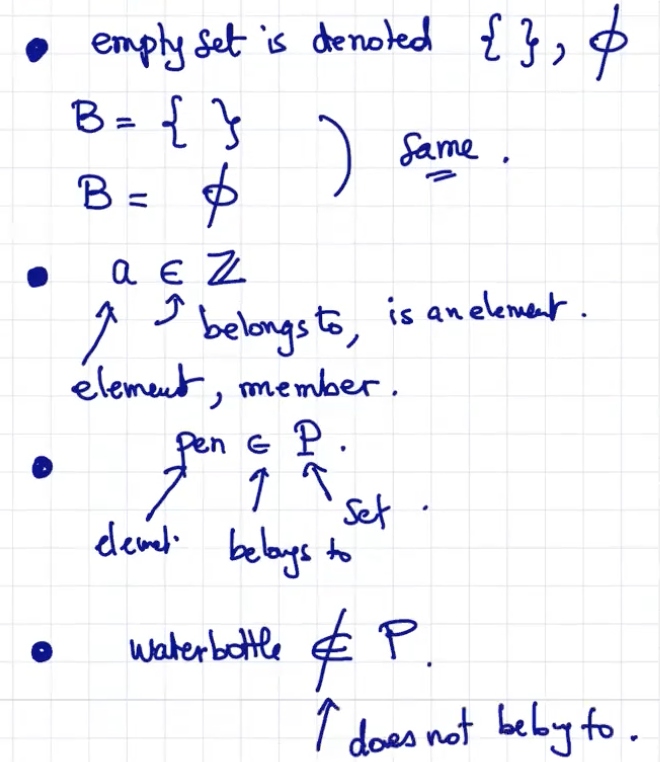 • empty set is denoted { }, ϕ
B = { }
same.
B = ϕ
• a ∈ ℤ
belongs to, is an element.
element, member.
• pen ∈ P.
set.
elemet. belongs to
• waterbottle ∉ P.
does not belong to.